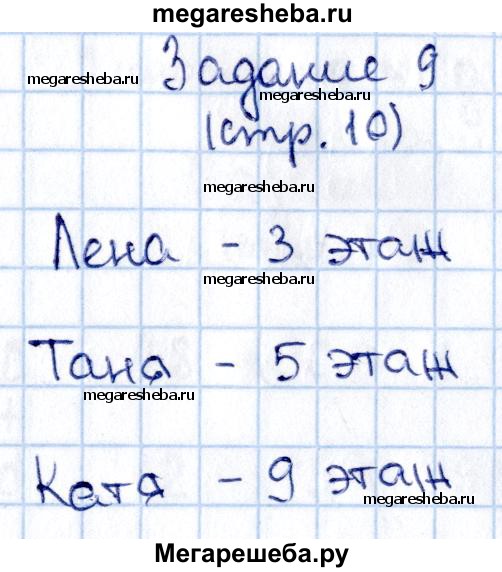 megaresheba.ru
Задание 9
megaresheba.ru
megaresheba.ru
(стр. 10)
megaresheba.ru
Лена - 3 этаж
megaresheba.ru
Таня - 5 этаж
megaresheba.ru
Катя - 9 этаж
megaresheba.ru
Мегарешеба.ру